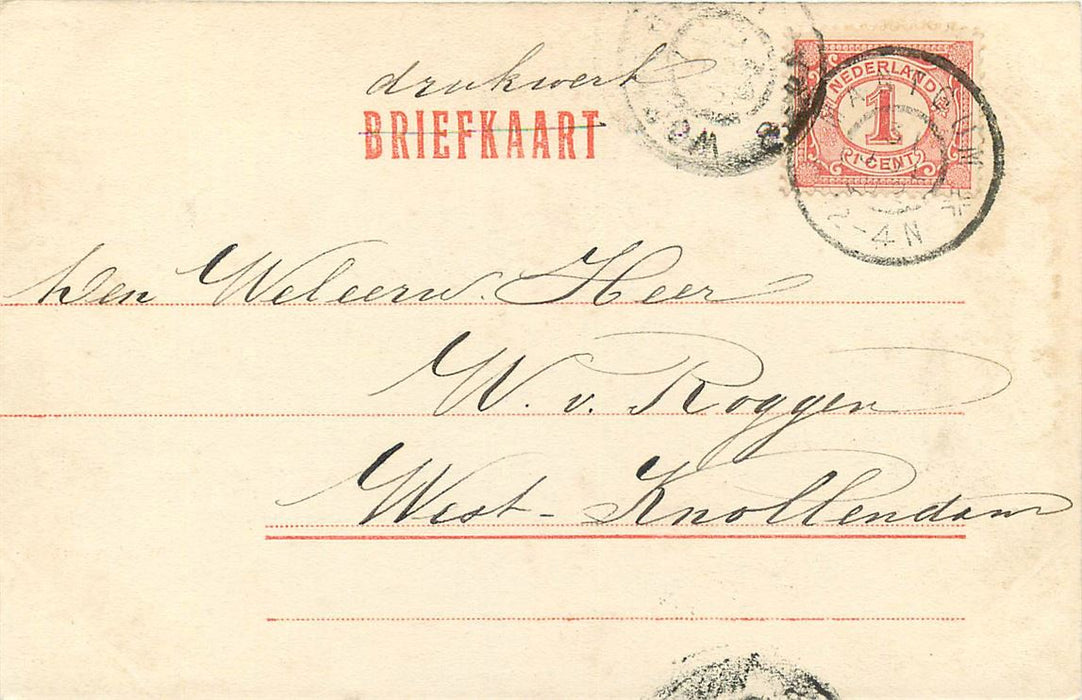 drukwert
BRIEFKAART
NEDERLAND
1
1 CENT
2-4N
den Weleerw. Heer
W. v. Roggen
West-Knollendam